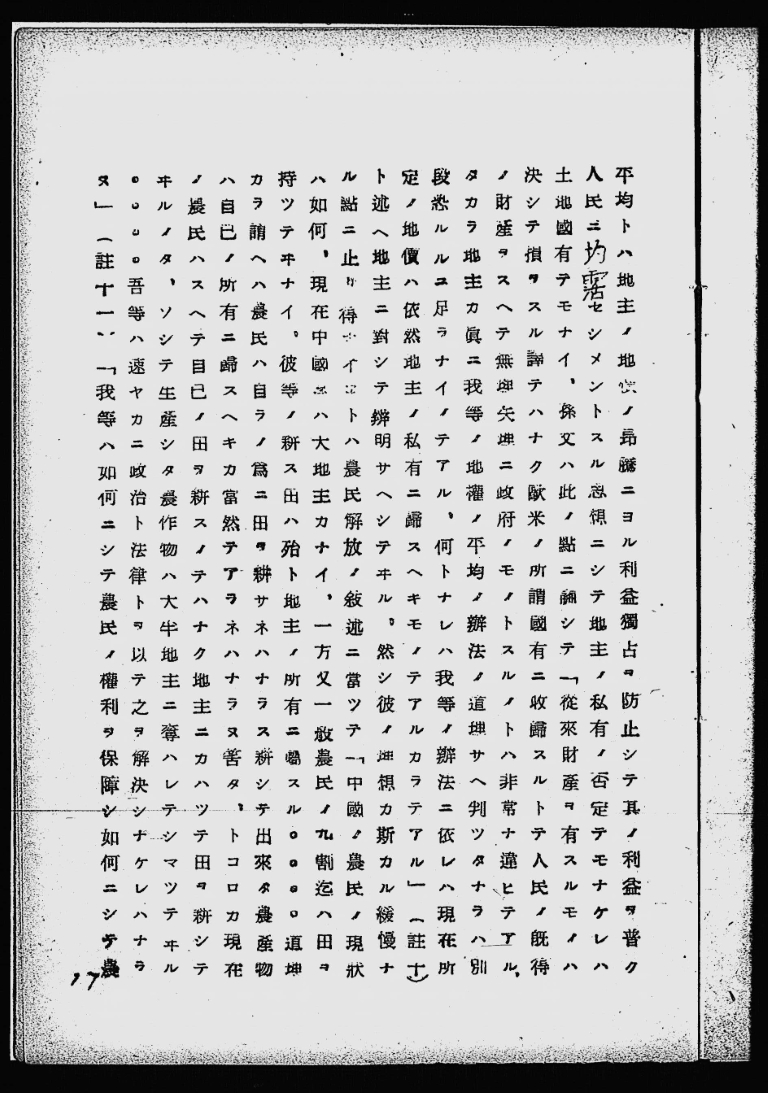 平均トハ地主ノ地價ノ昂騰ニヨル利益獨占ヲ防止シテ其ノ利益ヲ普ク
人民ニ均霑セシメントスル思想ニシテ地主ノ私有ノ否定テモナケレハ
土地國有テモナイ、孫文ハ此ノ點ニ論シテ「從來財產ヲ有スルモノハ
決シテ損ヲスル譯テハナク歐米ノ所謂國有ニ收歸スルトテ人民ノ既得
ノ財產ヲスヘテ無理矢理ニ政府ノモノトスルノトハ非常ナ違ヒテアル、
タカラ地主カ眞ニ我等ノ地權ノ平均ノ辦法ノ道理サヘ判ツタナラハ別
段恐ルルニ足ラナイノテアル、何トナレハ我等ノ辦法ニ依レハ現在所
定ノ地價ハ依然地主ノ私有ニ歸スヘキモノテアルカラテアル」(註十)
ト述ヘ地主ニ對シテ辯明サヘシテヰル。然シ彼ノ理想カ斯カル緩慢ナ
ル點ニ止リ得ナイコトハ農民解放ノ敍述ニ當ツテ「中國ノ農民ノ現狀
ハ如何、現在中國ニハ大地主カナイ、一方又一般農民ノ九割迄ハ田ヲ
持ツテヰナイ。彼等ノ耕ス田ハ殆ト地主ノ所有ニ屬スル○○○○道理
カラ謂ヘハ農民ハ自ラノ爲ニ田ヲ耕サネハナラス耕シテ出來タ農產物
ハ自己ノ所有ニ歸スヘキカ當然テアラネハナラヌ筈タ、トコロカ現在
ノ農民ハスヘテ自己ノ田ヲ耕スノテハナク地主ニカハツテ田ヲ耕シテ
ヰルノタ、ソシテ生產シタ農作物ハ大半地主ニ奪ハレテシマツテヰル
○○○○吾等ハ速ヤカニ政治ト法律トヲ以テ之ヲ解決シナケレハナラ
ヌ」(註十一)、「我等ハ如何ニシテ農民ノ權利ヲ保障シ如何ニシテ農
17